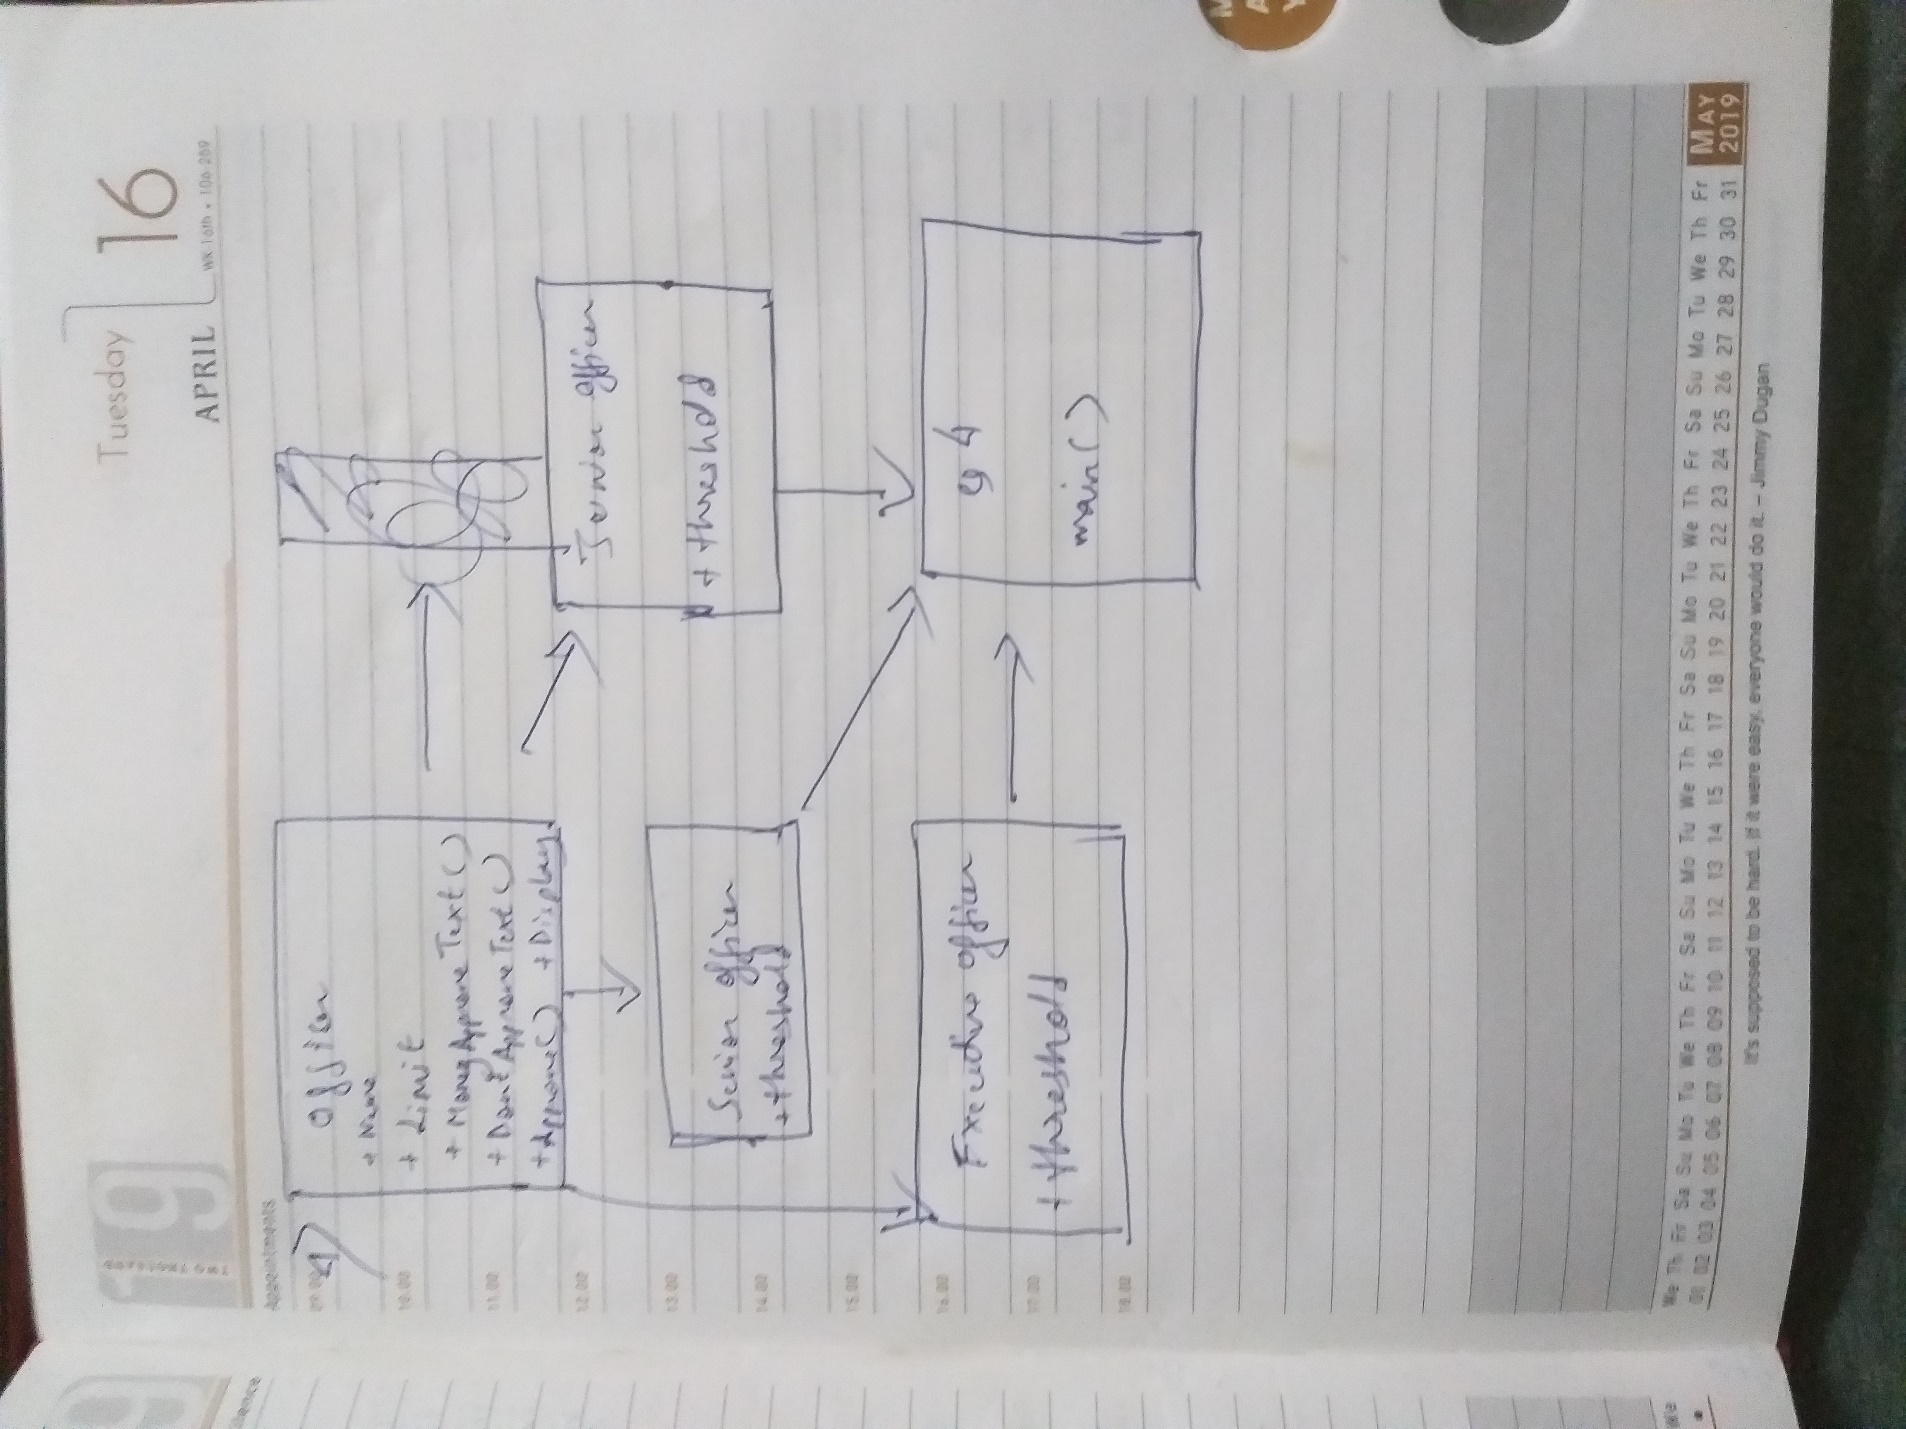 Tuesday
16
APRIL
WK 16th • 106-259
Appointments
09.00
10.00
11.00
12.00
13.00
14.00
15.00
16.00
17.00
18.00
4)
Officer
+ Name
+ Limit
+ MoneyApproveText()
+ DontApproveText()
+ Approve() + Display
Junior officer
+ threshold
Senior officer
+ threshold
Executive officer
+ threshold
Q4
main()
We Th Fr Sa Su Mo Tu We Th Fr Sa Su Mo Tu We Th Fr Sa Su Mo Tu We Th Fr Sa Su Mo Tu We Th Fr
01 02 03 04 05 06 07 08 09 10 11 12 13 14 15 16 17 18 19 20 21 22 23 24 25 26 27 28 29 30 31
MAY
2019
It's supposed to be hard. If it were easy, everyone would do it. – Jimmy Dugan
We